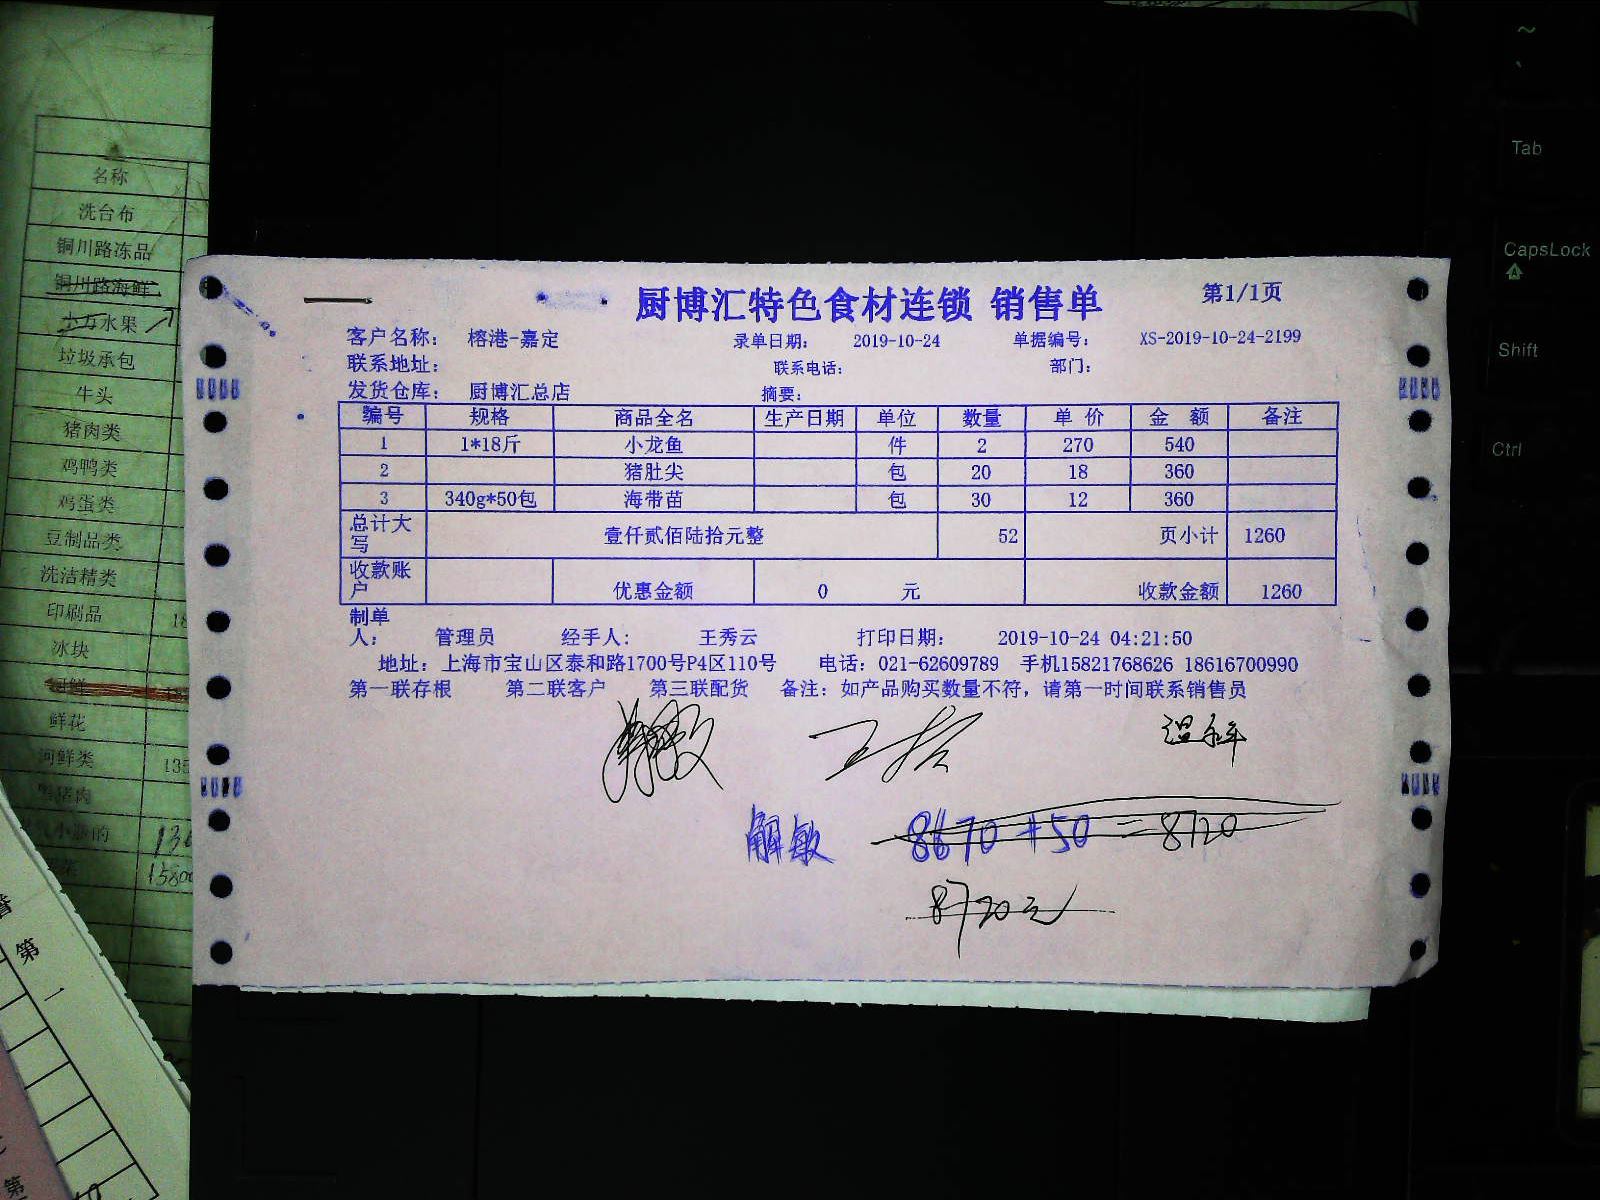 厨博汇特色食材连锁 销售单 第1/1页
客户名称: 榕港-嘉定 录单日期: 2019-10-24 单据编号: XS-2019-10-24-2199
联系地址: 联系电话: 部门:
发货仓库: 厨博汇总店 摘要:
编号 规格 商品全名 生产日期 单位 数量 单 价 金 额 备注
1 1*18斤 小龙鱼 件 2 270 540
2 猪肚尖 包 20 18 360
3 340g*50包 海带苗 包 30 12 360
总计大写 壹仟贰佰陆拾元整 52 页小计 1260
收款账户 优惠金额 0 元 收款金额 1260
制单人: 管理员 经手人: 王秀云 打印日期: 2019-10-24 04:21:50
地址: 上海市宝山区泰和路1700号P4区110号 电话: 021-62609789 手机15821768626 18616700990
第一联存根 第二联客户 第三联配货 备注: 如产品购买数量不符, 请第一时间联系销售员
解敏 8670+50=8720
8720元
名称
洗台布
铜川路冻品
铜川路海鲜
水果
垃圾承包
牛头
猪肉类
鸡鸭类
鸡蛋类
豆制品类
洗洁精类
印刷品
冰块
鲜花
河鲜类
第一
第
~
`
Tab
CapsLock
Shift
Ctrl